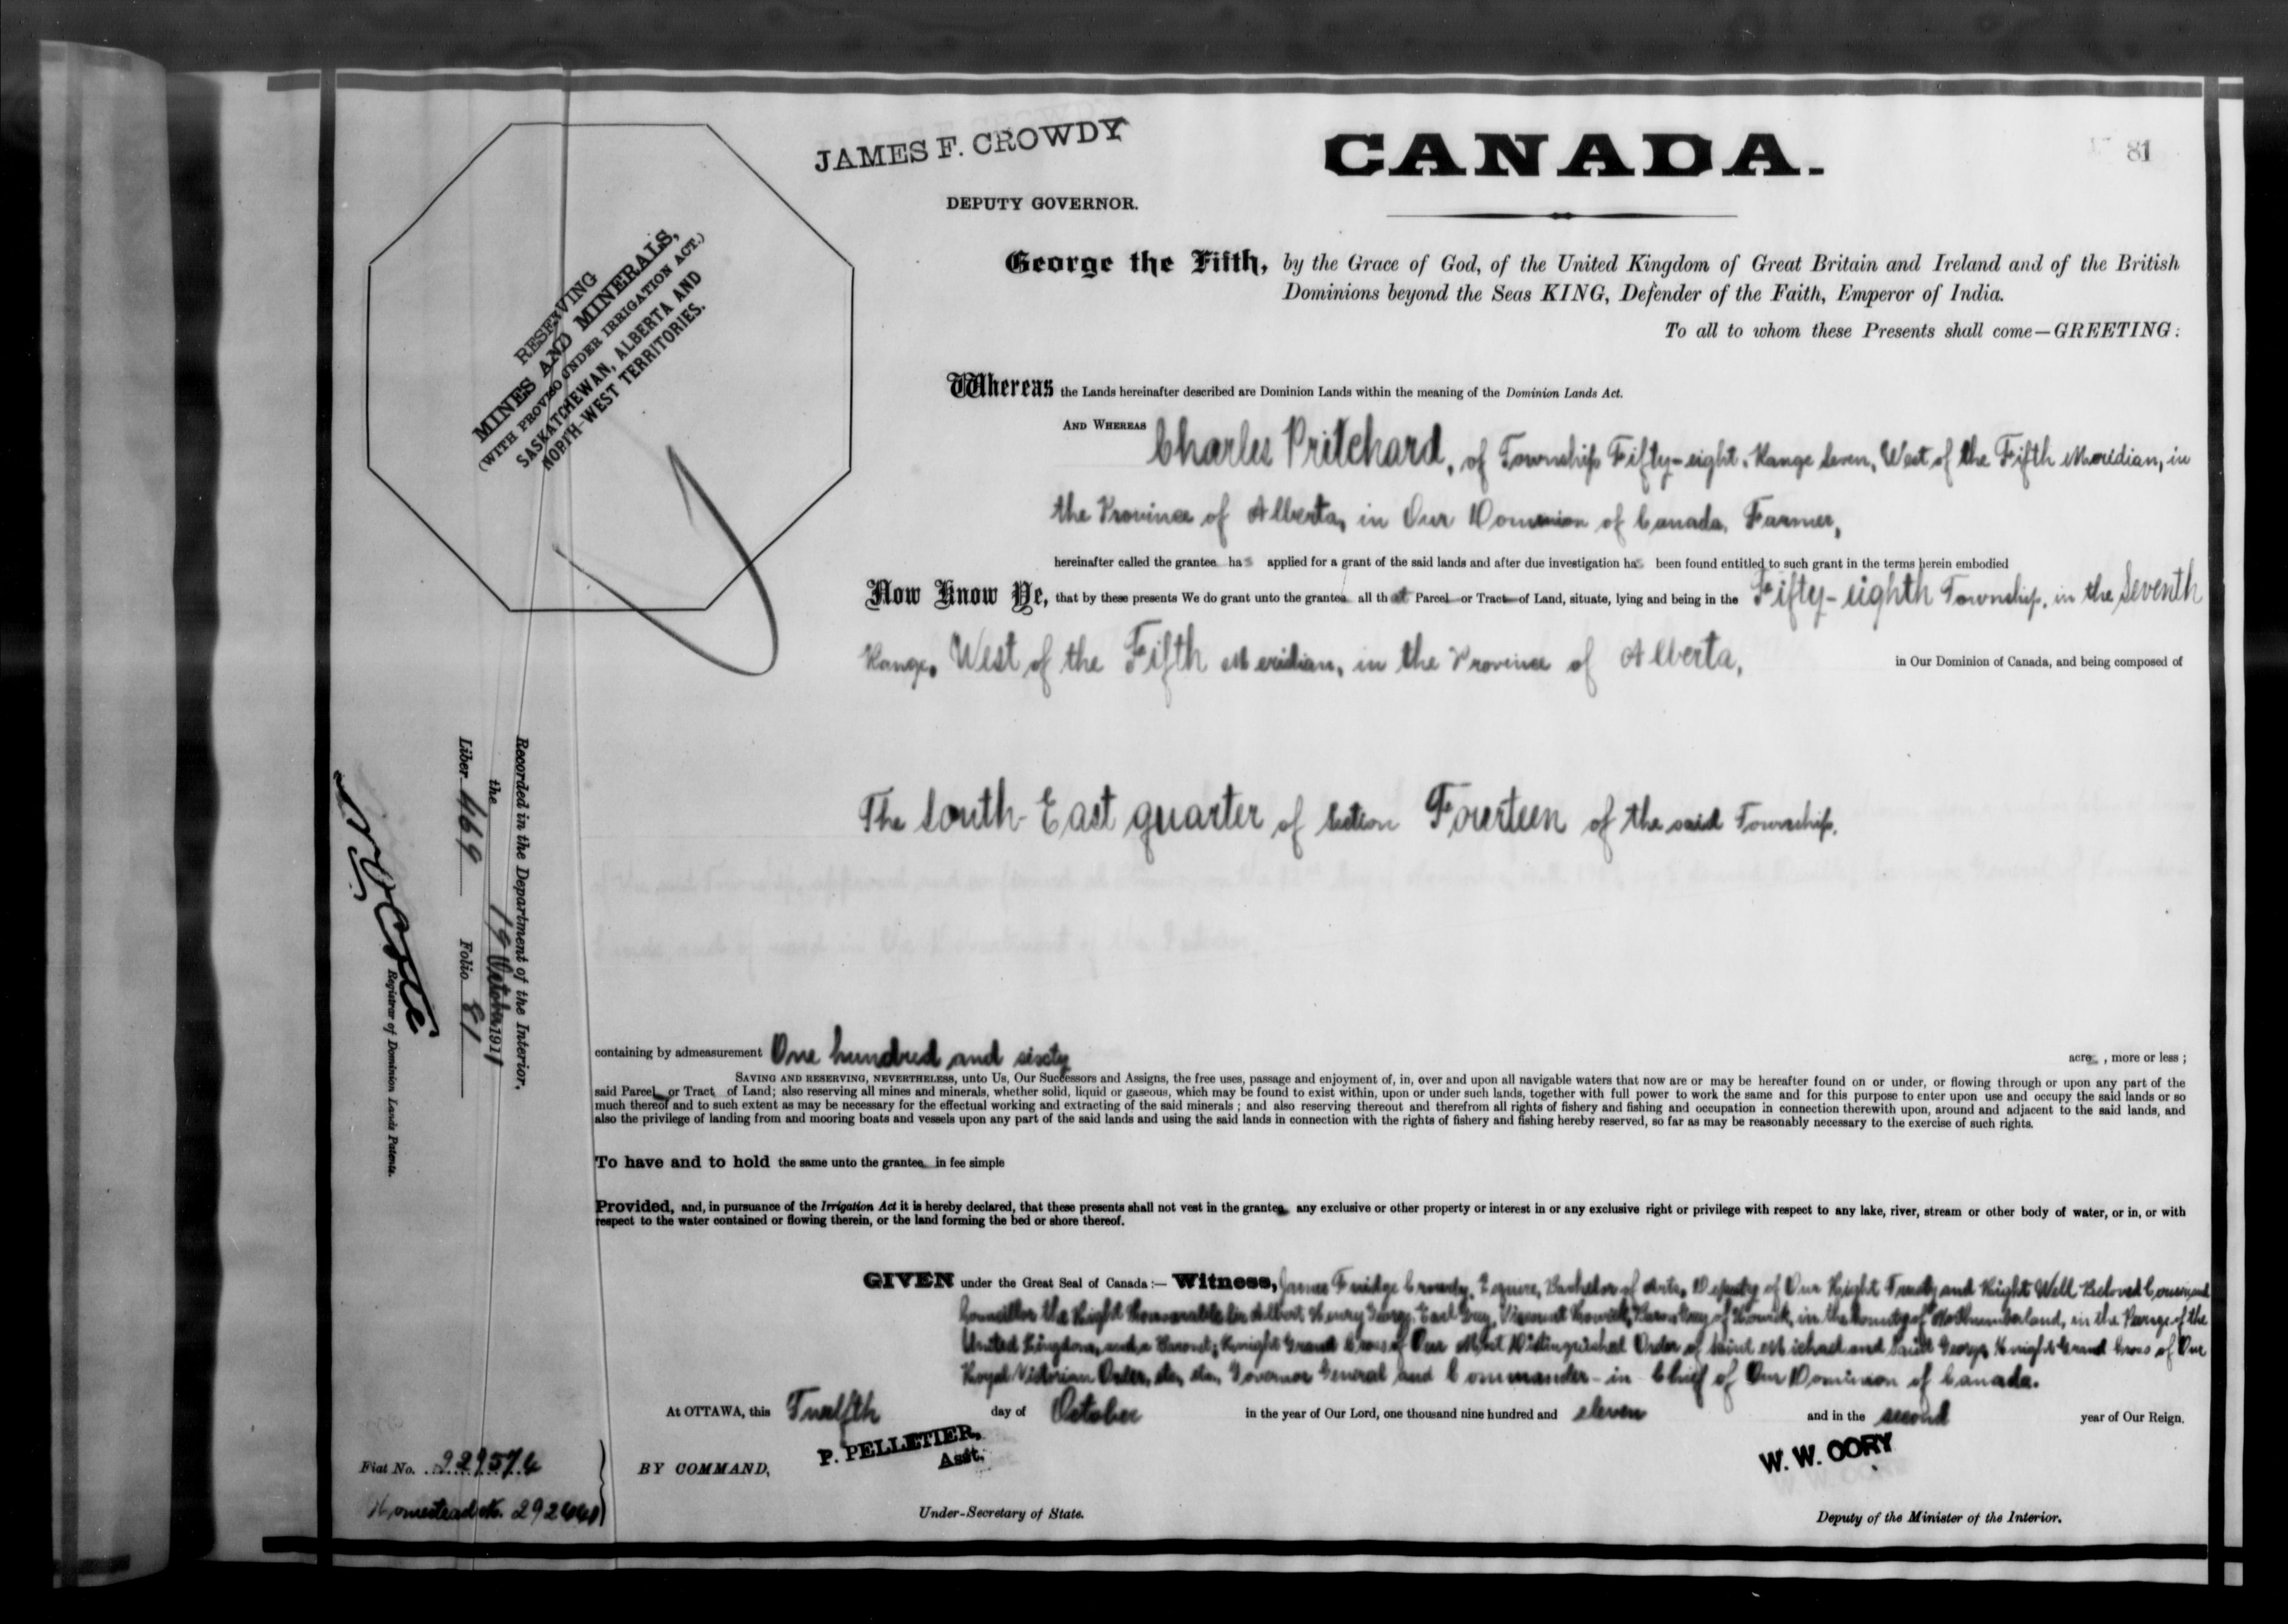 81
JAMES F. CROWDY
DEPUTY GOVERNOR.
CANADA.
RESERVING
MINES AND MINERALS,
(WITH PROVISO UNDER IRRIGATION ACT.)
SASKATCHEWAN, ALBERTA AND
NORTH-WEST TERRITORIES.
George the Fifth, by the Grace of God, of the United Kingdom of Great Britain and Ireland and of the British
Dominions beyond the Seas KING, Defender of the Faith, Emperor of India.
To all to whom these Presents shall come—GREETING:
Whereas the Lands hereinafter described are Dominion Lands within the meaning of the Dominion Lands Act.
AND WHEREAS Charles Pritchard, of Township Fifty-eight, Range Seven, West of the Fifth Meridian, in
the Province of Alberta, in Our Dominion of Canada, Farmer,
hereinafter called the grantee has applied for a grant of the said lands and after due investigation has been found entitled to such grant in the terms herein embodied
Now Know Ye, that by these presents We do grant unto the grantee all that Parcel or Tract of Land, situate, lying and being in the Fifty-eighth Township, in the Seventh
Range, West of the Fifth Meridian, in the Province of Alberta, in Our Dominion of Canada, and being composed of
The South East quarter of Section Fourteen of the said Township.
containing by admeasurement One hundred and sixty acres, more or less;
SAVING AND RESERVING, NEVERTHELESS, unto Us, Our Successors and Assigns, the free uses, passage and enjoyment of, in, over and upon all navigable waters that now are or may be hereafter found on or under, or flowing through or upon any part of the
said Parcel or Tract of Land; also reserving all mines and minerals, whether solid, liquid or gaseous, which may be found to exist within, upon or under such lands, together with full power to work the same and for this purpose to enter upon use and occupy the said lands or so
much thereof and to such extent as may be necessary for the effectual working and extracting of the said minerals; and also reserving thereout and therefrom all rights of fishery and fishing and occupation in connection therewith upon, around and adjacent to the said lands, and
also the privilege of landing from and mooring boats and vessels upon any part of the said lands and using the said lands in connection with the rights of fishery and fishing hereby reserved, so far as may be reasonably necessary to the exercise of such rights.
To have and to hold the same unto the grantee in fee simple
Provided, and, in pursuance of the Irrigation Act it is hereby declared, that these presents shall not vest in the grantee any exclusive or other property or interest in or any exclusive right or privilege with respect to any lake, river, stream or other body of water, or in, or with
respect to the water contained or flowing therein, or the land forming the bed or shore thereof.
GIVEN under the Great Seal of Canada:— Witness, James Fuidge Crowdy, Esquire, Bachelor of Arts, Deputy of Our Right Trusty and Right Well Beloved Cousin and
Councillor the Right Honourable Sir Albert Henry George, Earl Grey, Viscount Howick, Baron Grey of Howick, in the County of Northumberland, in the Peerage of the
United Kingdom, and a Baronet; Knight Grand Cross of Our Most Distinguished Order of Saint Michael and Saint George, Knight Grand Cross of Our
Royal Victorian Order, etc., etc., Governor General and Commander-in-Chief of Our Dominion of Canada.
At OTTAWA, this Twelfth day of October in the year of Our Lord, one thousand nine hundred and eleven and in the second year of Our Reign.
BY COMMAND,
P. PELLETIER,
Asst.
W. W. CORY
Under-Secretary of State.
Deputy of the Minister of the Interior.
Recorded in the Department of the Interior.
the 19 October 1911
Liber 469 Folio 81
Registrar of Dominion Lands Patents.
Fiat No. 229574
Homestead No.